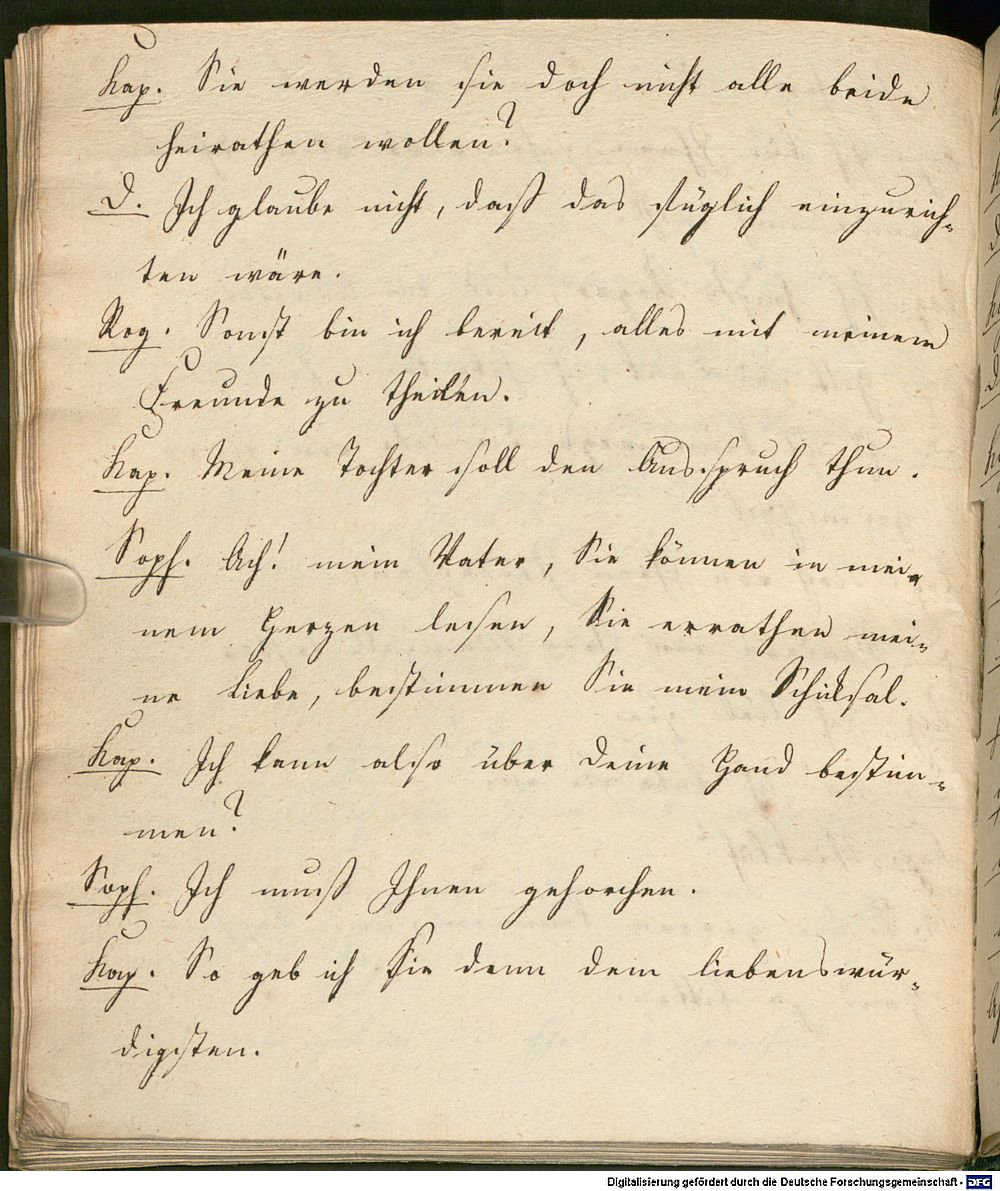 Kap. Sie werden sie doch nicht alle beide
heirathen wollen?
D. Ich glaube nicht, daß das füglich einzurich-
ten wäre.
Rog. Sonst bin ich bereit, alles mit meinem
Freunde zu theilen.
Kap. Meine Tochter soll den Ausspruch thun.
Soph. Ach! mein Vater, Sie können in mei-
nem Herzen lesen, Sie errathen mei-
ne Liebe, bestimmen Sie mein Schicksal.
Kap. Ich kann also über deine Hand bestim-
men?
Soph. Ich muß Ihnen gehorchen.
Kap. So geb ich Sie denn dem liebenswür-
digsten.
Digitalisierung gefördert durch die Deutsche Forschungsgemeinschaft - DFG